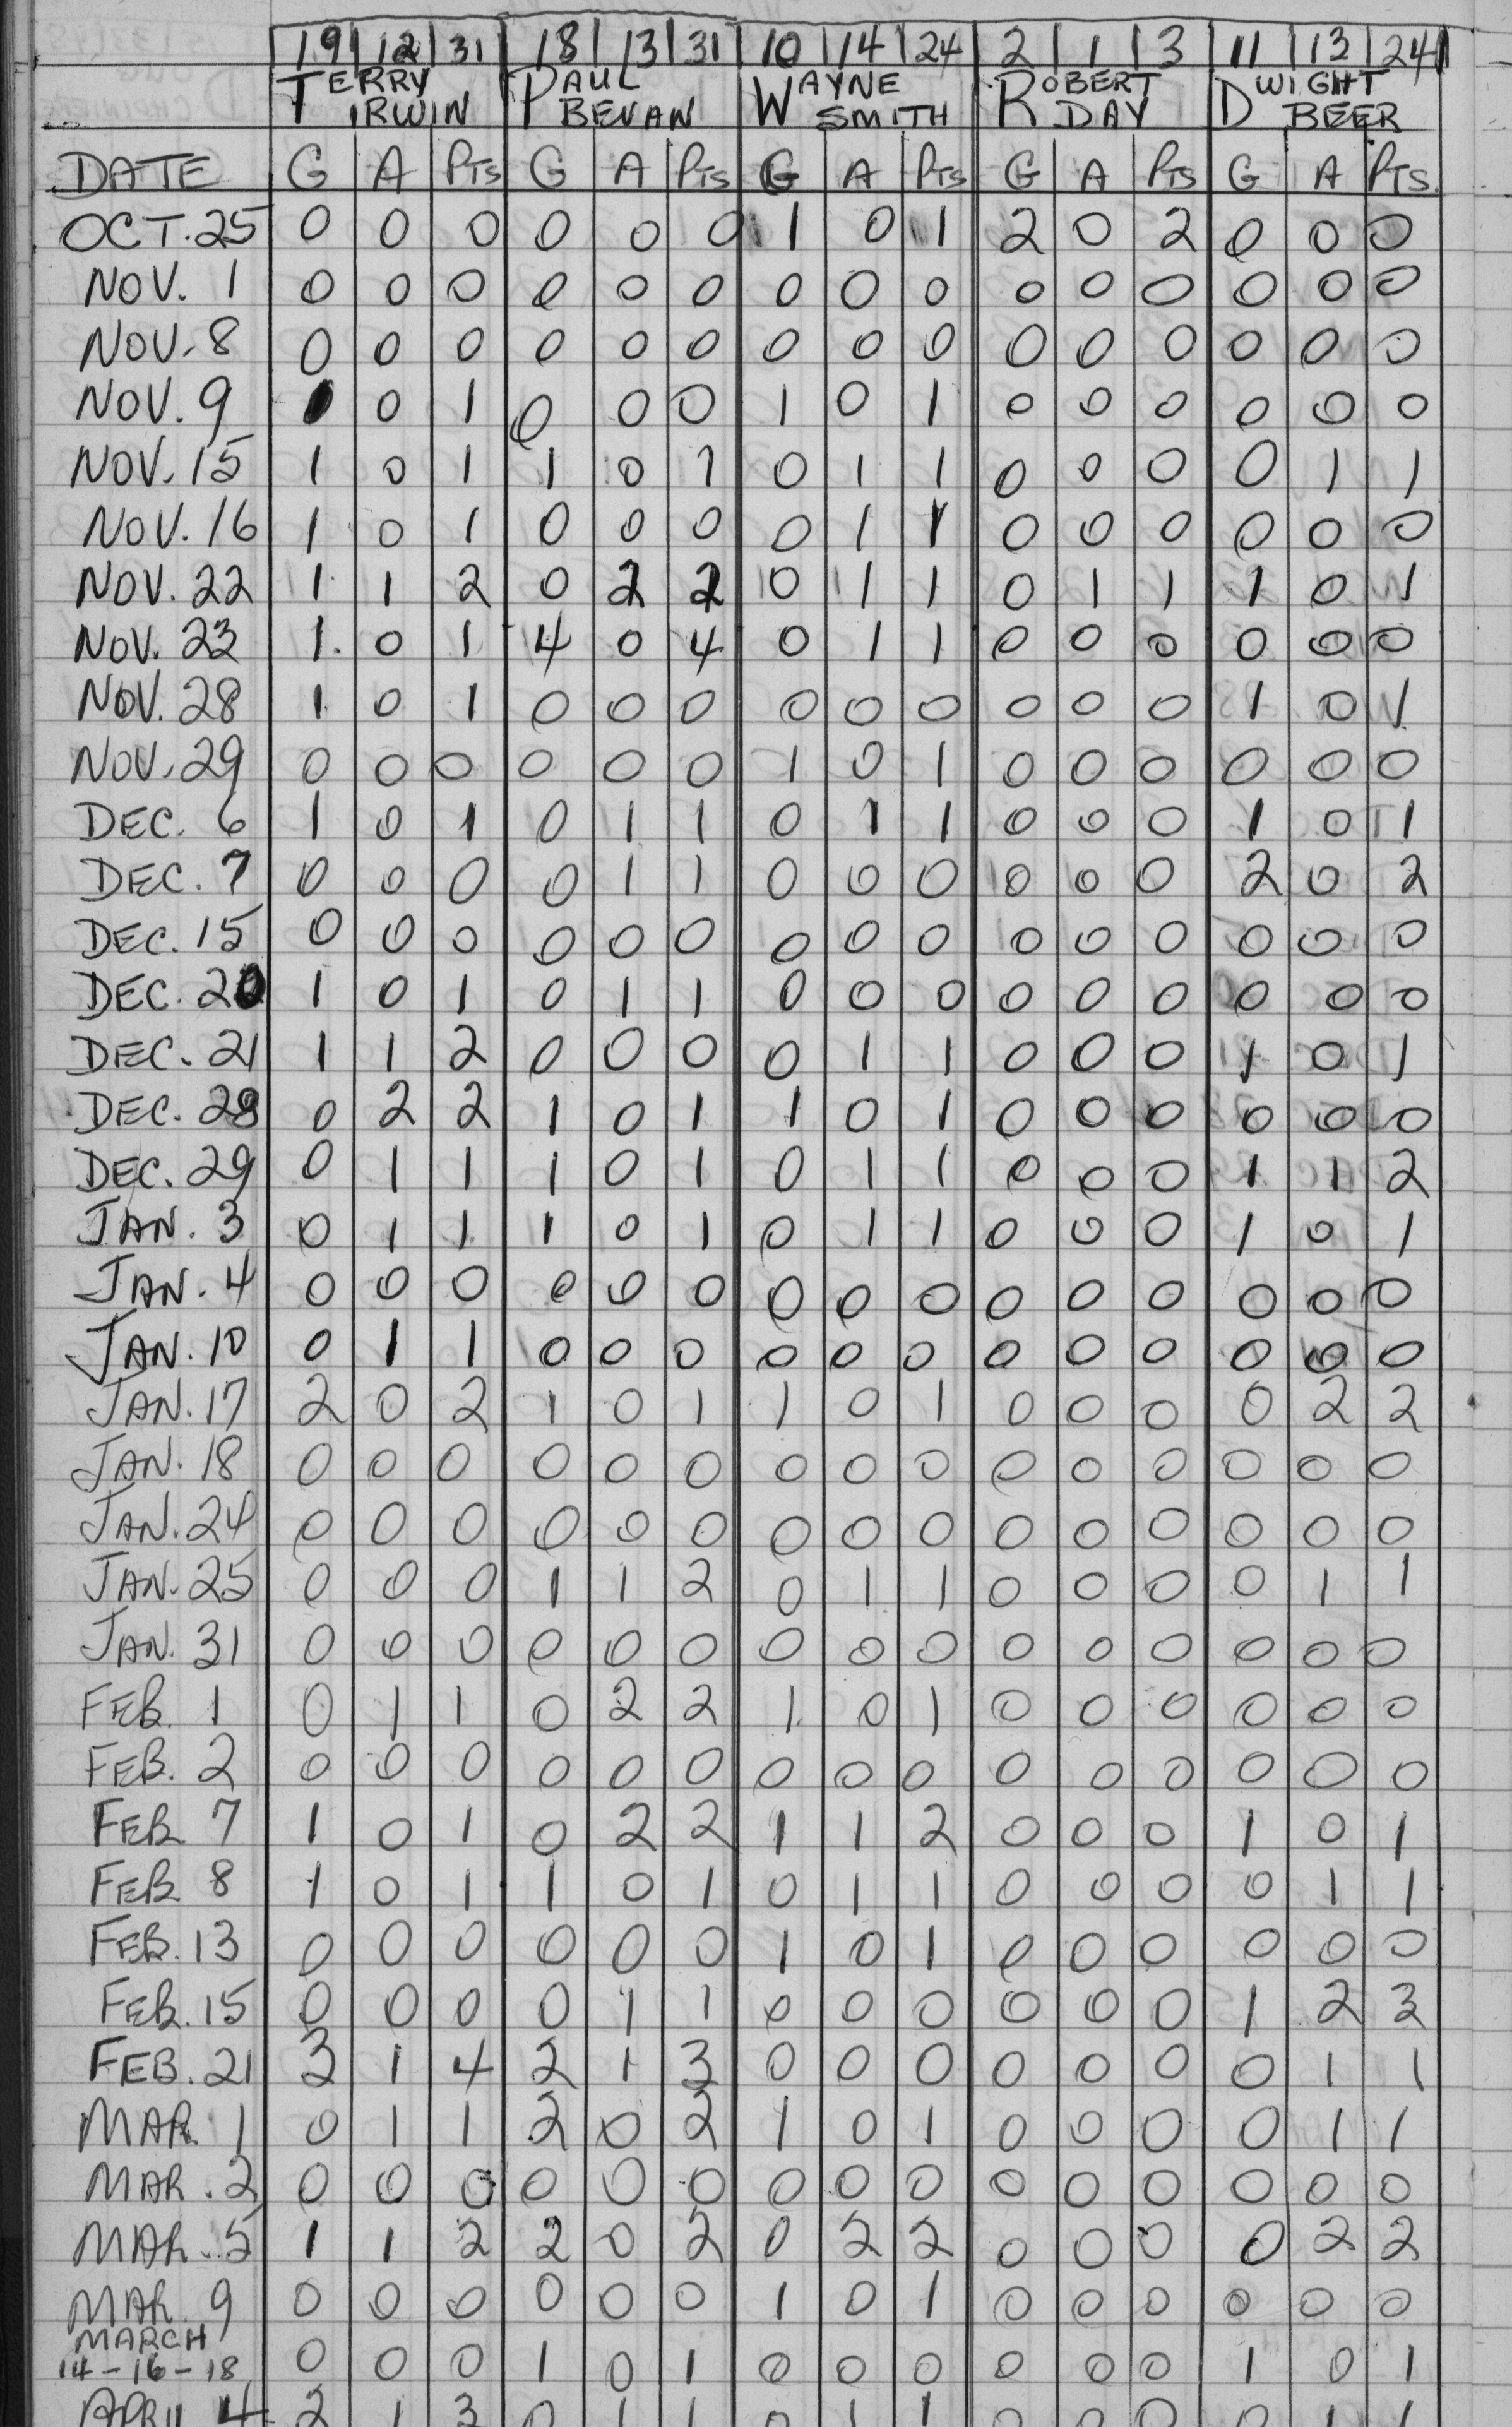 19 12 31 18 13 31 10 14 24 2 1 3 11 13 24
TERRY PAUL WAYNE ROBERT DWIGHT
IRWIN BEVAN SMITH DAY BEER
DATE G A PTS G A PTS G A PTS G A PTS G A PTS.
OCT. 25 0 0 0 0 0 0 1 0 1 2 0 2 0 0 0
NOV. 1 0 0 0 0 0 0 0 0 0 0 0 0 0 0 0
NOV. 8 0 0 0 0 0 0 0 0 0 0 0 0 0 0 0
NOV. 9 1 0 1 0 0 0 1 0 1 0 0 0 0 0 0
NOV. 15 1 0 1 1 0 1 0 1 1 0 0 0 0 1 1
NOV. 16 1 0 1 0 0 0 0 1 1 0 0 0 0 0 0
NOV. 22 1 1 2 0 2 2 0 1 1 0 1 1 1 0 1
NOV. 23 1 0 1 4 0 4 0 1 1 0 0 0 0 0 0
NOV. 28 1 0 1 0 0 0 0 0 0 0 0 0 1 0 1
NOV. 29 0 0 0 0 0 0 1 0 1 0 0 0 0 0 0
DEC. 6 1 0 1 0 1 1 0 1 1 0 0 0 1 0 1
DEC. 7 0 0 0 0 1 1 0 0 0 0 0 0 2 0 2
DEC. 15 0 0 0 0 0 0 0 0 0 0 0 0 0 0 0
DEC. 20 1 0 1 0 1 1 0 0 0 0 0 0 0 0 0
DEC. 21 1 1 2 0 0 0 0 1 1 0 0 0 1 0 1
DEC. 28 0 2 2 1 0 1 1 0 1 0 0 0 0 0 0
DEC. 29 0 1 1 1 0 1 0 1 1 0 0 0 1 1 2
JAN. 3 0 1 1 1 0 1 0 1 1 0 0 0 1 0 1
JAN. 4 0 0 0 0 0 0 0 0 0 0 0 0 0 0 0
JAN. 10 0 1 1 0 0 0 0 0 0 0 0 0 0 0 0
JAN. 17 2 0 2 1 0 1 1 0 1 0 0 0 0 2 2
JAN. 18 0 0 0 0 0 0 0 0 0 0 0 0 0 0 0
JAN. 24 0 0 0 0 0 0 0 0 0 0 0 0 0 0 0
JAN. 25 0 0 0 1 1 2 0 1 1 0 0 0 0 1 1
JAN. 31 0 0 0 0 0 0 0 0 0 0 0 0 0 0 0
FEB. 1 0 1 1 0 2 2 1 0 1 0 0 0 0 0 0
FEB. 2 0 0 0 0 0 0 0 0 0 0 0 0 0 0 0
FEB. 7 1 0 1 0 2 2 1 1 2 0 0 0 1 0 1
FEB. 8 1 0 1 1 0 1 0 1 1 0 0 0 0 1 1
FEB. 13 0 0 0 0 0 0 1 0 1 0 0 0 0 0 0
FEB. 15 0 0 0 0 1 1 0 0 0 0 0 0 1 2 3
FEB. 21 3 1 4 2 1 3 0 0 0 0 0 0 0 1 1
MAR. 1 0 1 1 2 0 2 1 0 1 0 0 0 0 1 1
MAR. 2 0 0 0 0 0 0 0 0 0 0 0 0 0 0 0
MAR. 5 1 1 2 2 0 2 0 2 2 0 0 0 0 2 2
MAR. 9 0 0 0 0 0 0 1 0 1 0 0 0 0 0 0
MARCH
14-16-18 0 0 0 1 0 1 0 0 0 0 0 0 1 0 1
APRIL 4 2 1 3 0 1 1 0 1 1 0 0 0 0 1 1